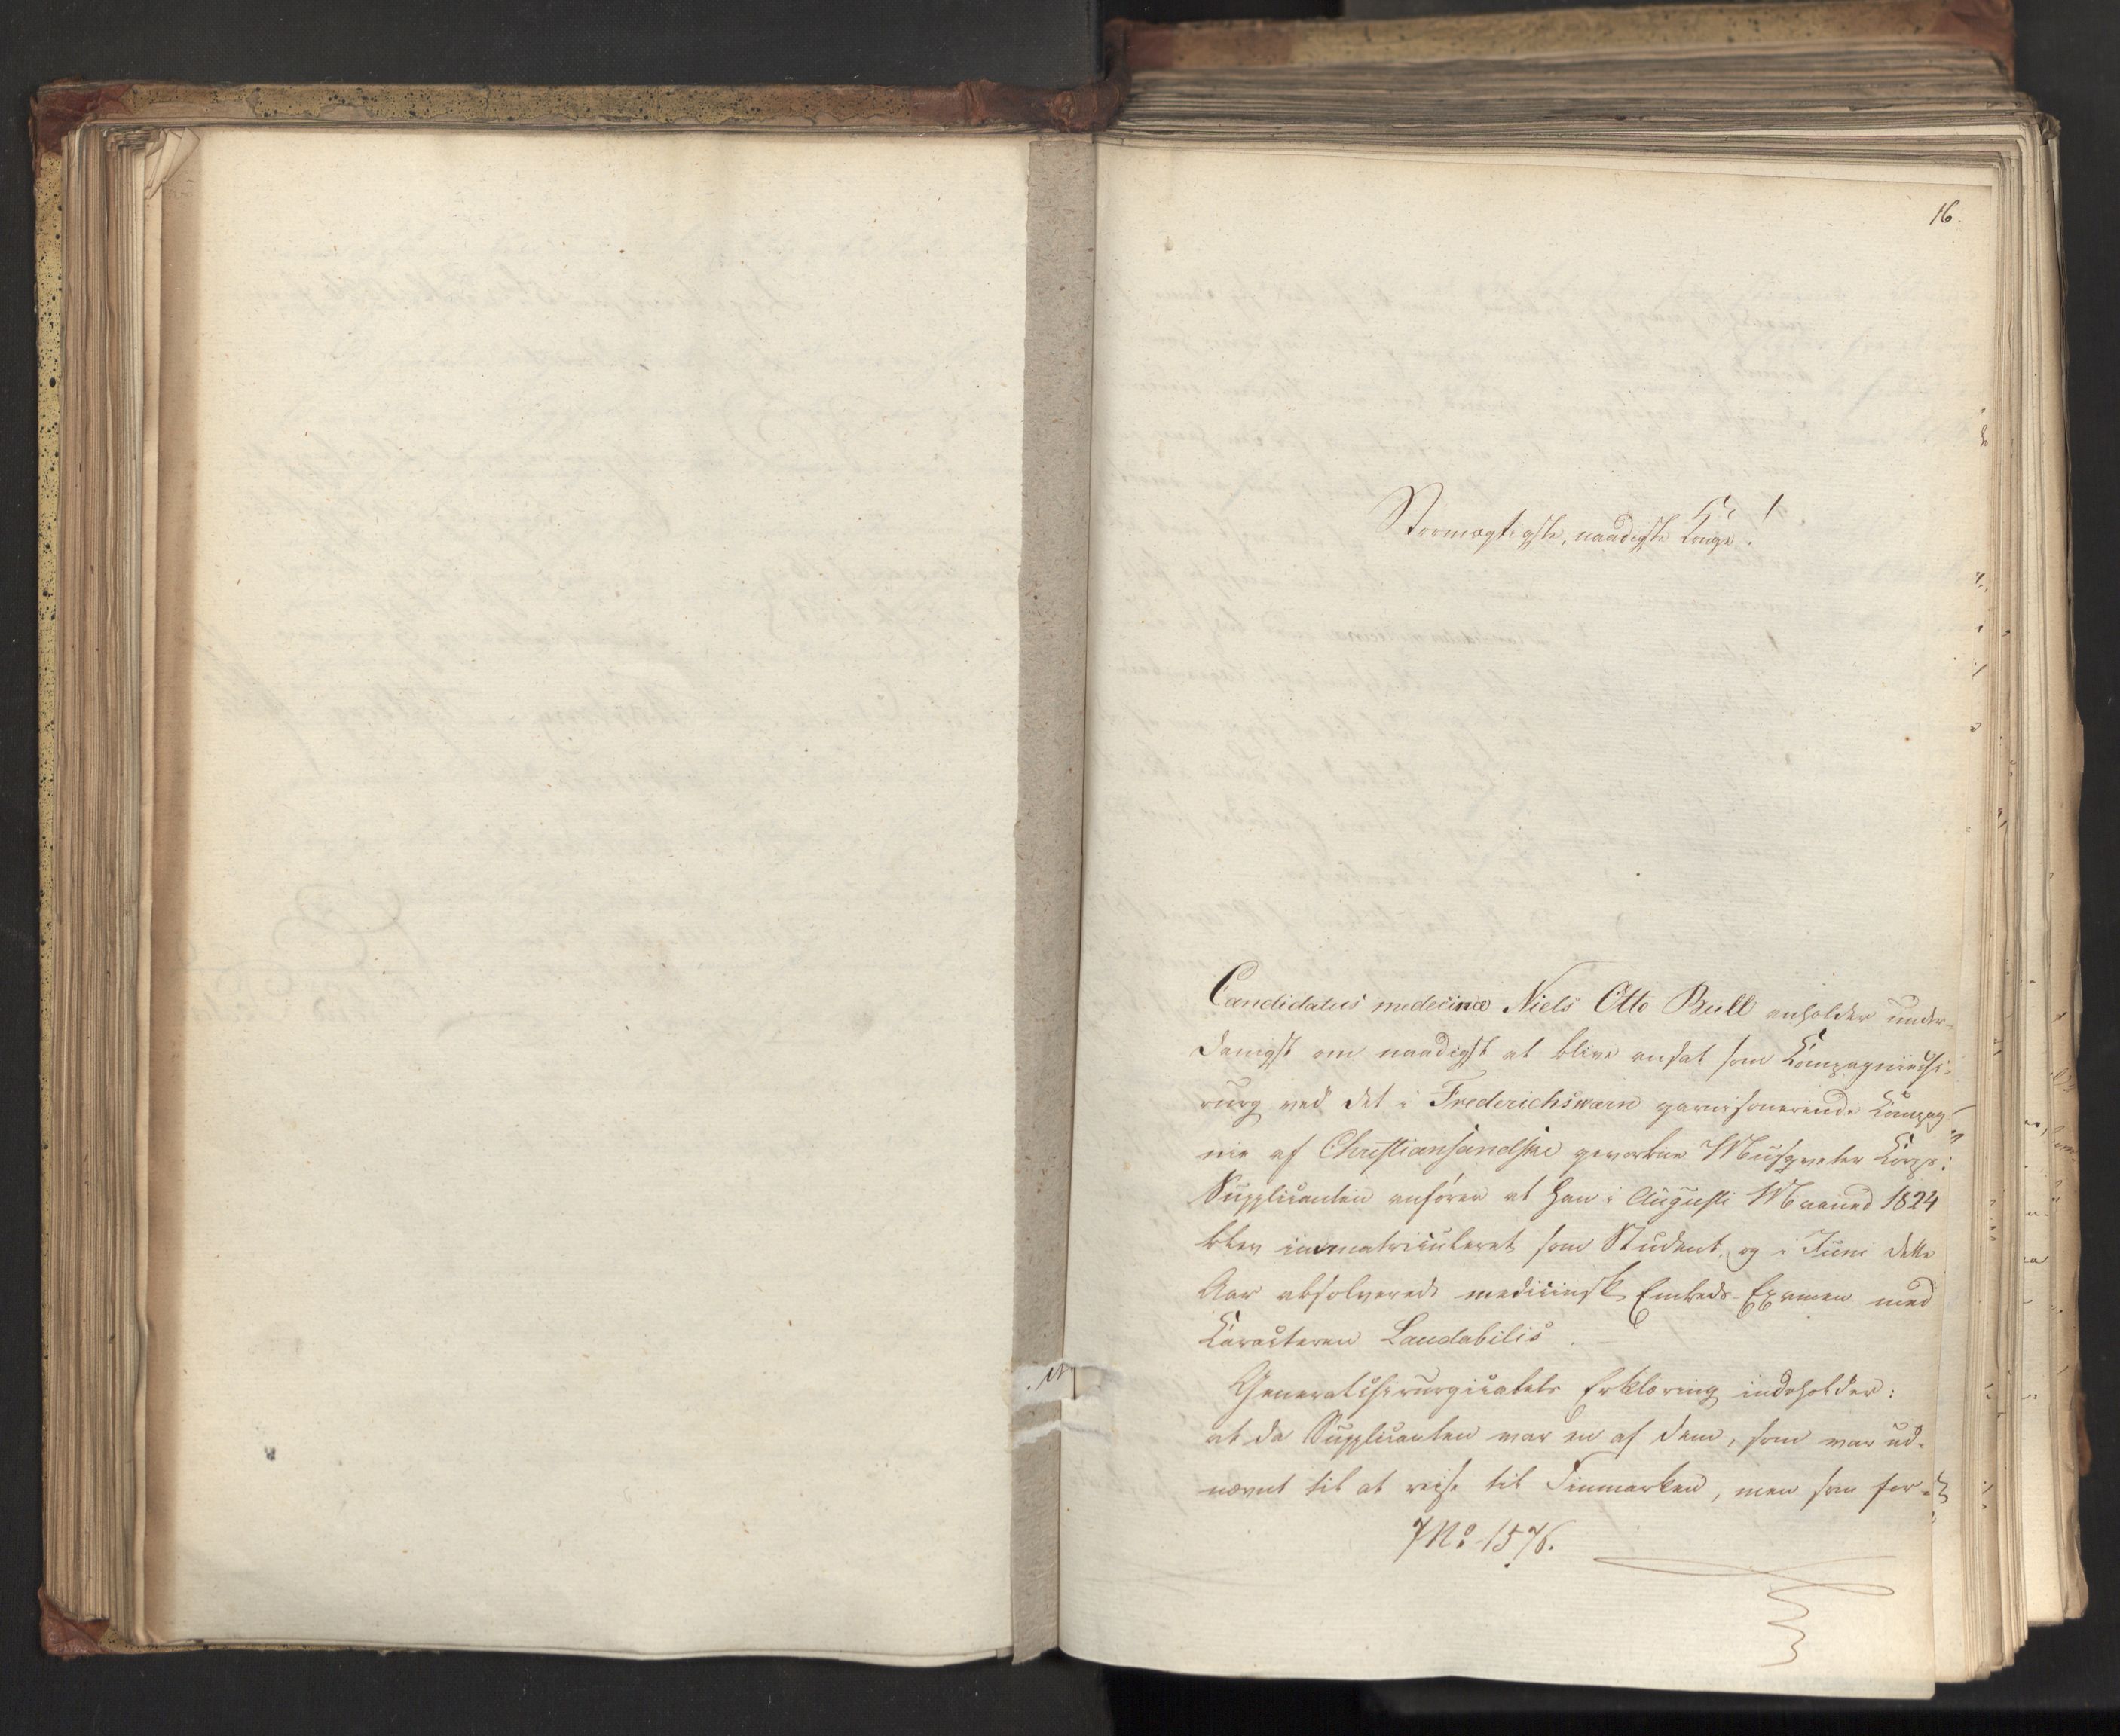 16.
Stormægtigste, naadigste Konge!
Candidatus medicinæ Niels Otto Bull anholder under-
danigst om naadigst at blive ansat som Kompagniechi-
rurg ved det i Frederichsværn garnisonerende Kompag-
nie af Christiansandske gevorbne Musqueteer Korps:
Supplicanten anförer at han i Augusti Maaned 1824
blev immatriculeret som Student, og i Juni dette
Aar absolverede medicinsk Embeds-Examen med
Karacteren Laudabilis.
Generalchirurgicatets Erklæring indeholder:
at da Supplicanten var en af dem, som var ud-
nævnt til at reise til Finmarken, men som for-
JNo. 1576.